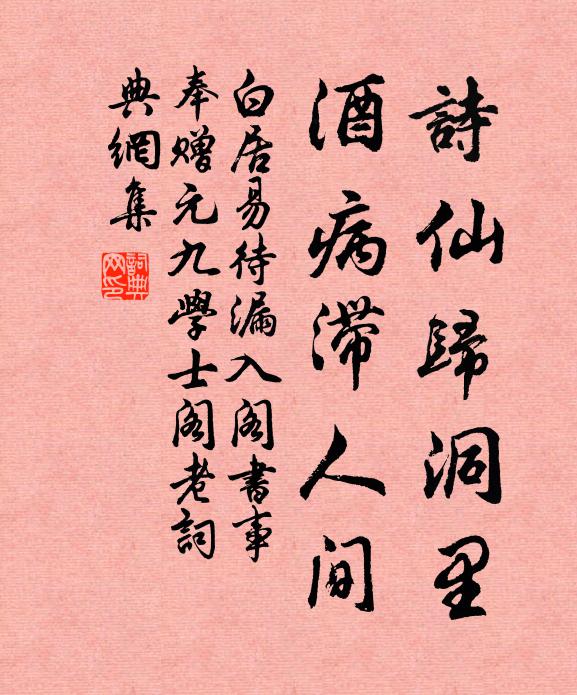 詩仙歸洞里
酒病滯人間
白居易待漏入閣書事
奉贈元九學士閣老詞
典網集
詞典
网印